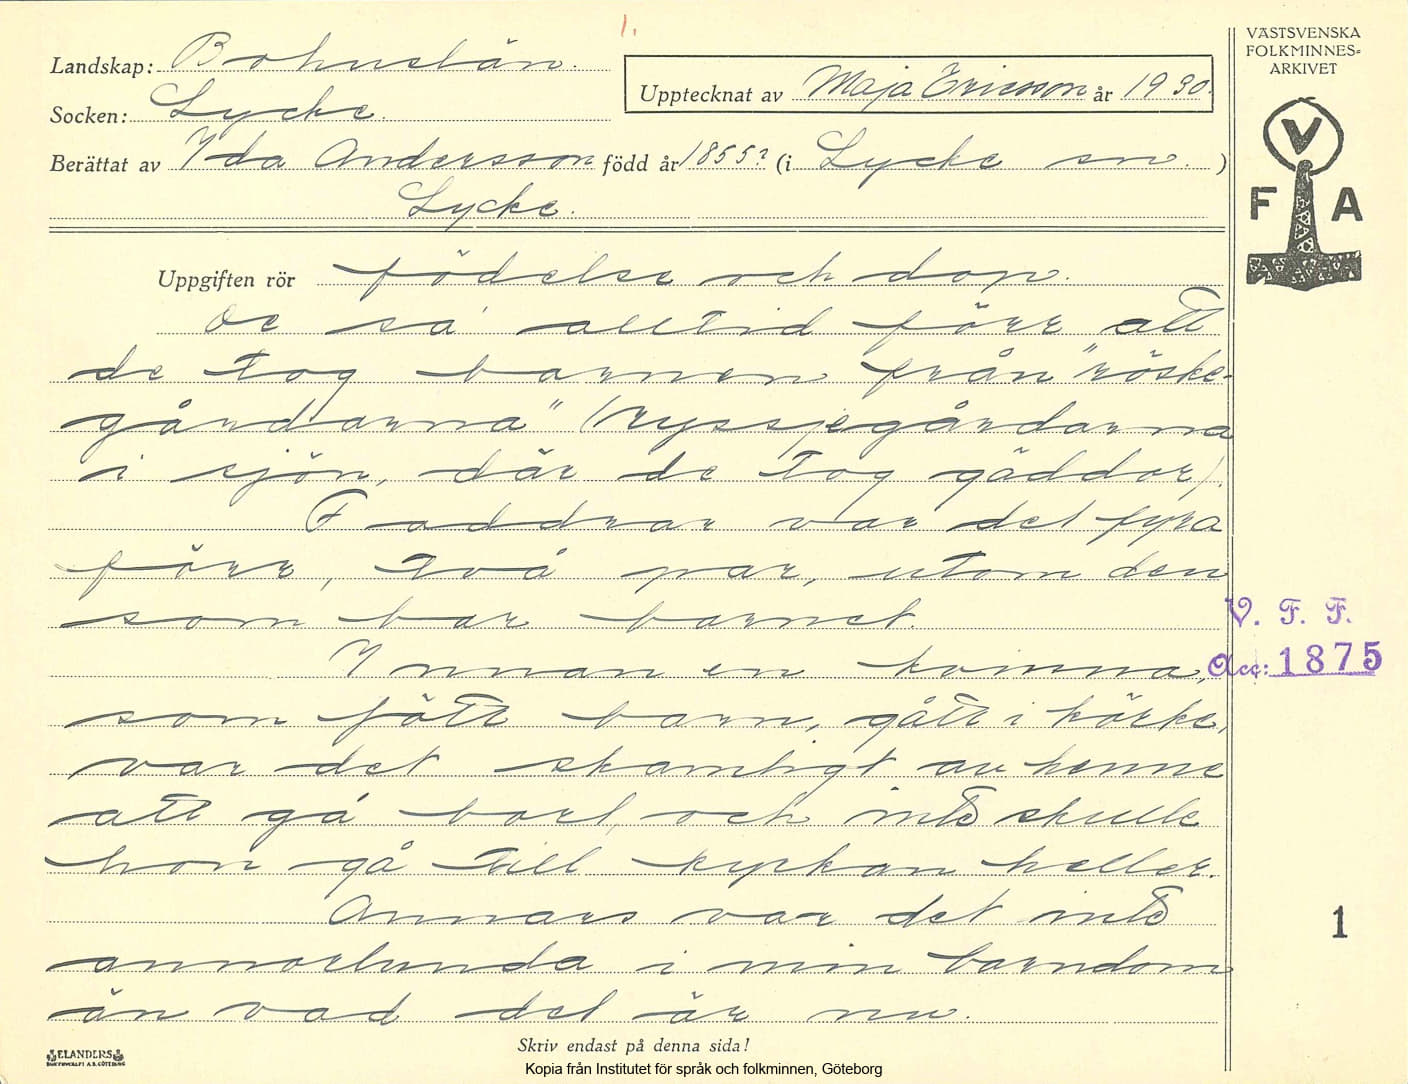 1.
VÄSTSVENSKA
FOLKMINNES=
ARKIVET
V
F A
Landskap: Bohuslän.
Upptecknat av Maja Ericsson år 1930.
Socken: Lycke.
Berättat av Ida Andersson född år 1855? (i Lycke sn. )
Lycke.
Uppgiften rör födelse och dop.
De sa' alltid förr att
de tog barnen från "röske-
gårdarna" (ryssjegårdarna
i sjön, där de tog gäddor).
Faddrar var det fyra
förr, två par, utom den
som bar barnet.
V. F. F.
Innan en kvinna,
Acc: 1875
som fått barn, gått i körke,
var det skamligt av henne
att gå bort, och inte skulle
hon gå till kyrkan heller.
Annars var det inte
1
annorlunda i min barndom
än vad det är nu.
Skriv endast på denna sida!
ELANDERS
BOKTRYCKERI A.B. GÖTEBORG
Kopia från Institutet för språk och folkminnen, Göteborg